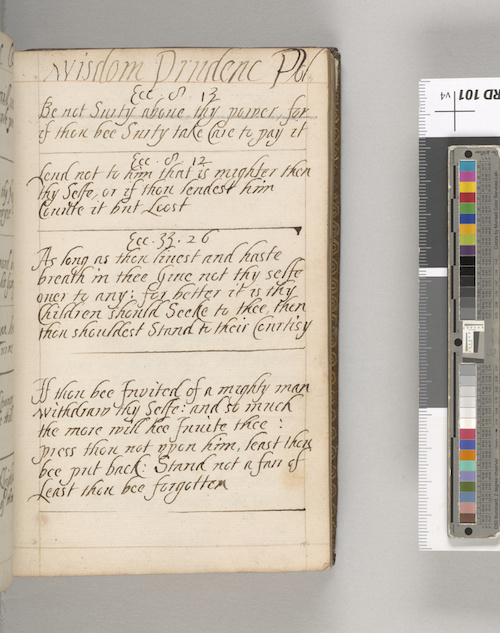 wisdom Prudenc
Ecc. 8. 13
Be not Surty aboue thy power, for
if thou bee Surty take Care to pay it
Ecc. 8. 12
Lend not to him that is mighter then
thy Selfe, or if thou lendest him
Counte it but Loost
Ecc. 33. 26
As long as thou liuest and haste
breath in thee Giue not thy selfe
ouer to any: for better it is thy
Children should Seeke to thee, then
thou shouldest Stand to their Courtisy
If thou bee Inuited of a mighty man
withdraw thy Selfe: and so much
the more will hee Inuite thee :
press thou not vpon him, least thou
bee put back: Stand not a farr of
Least thou bee forgotten
RD 101
v4